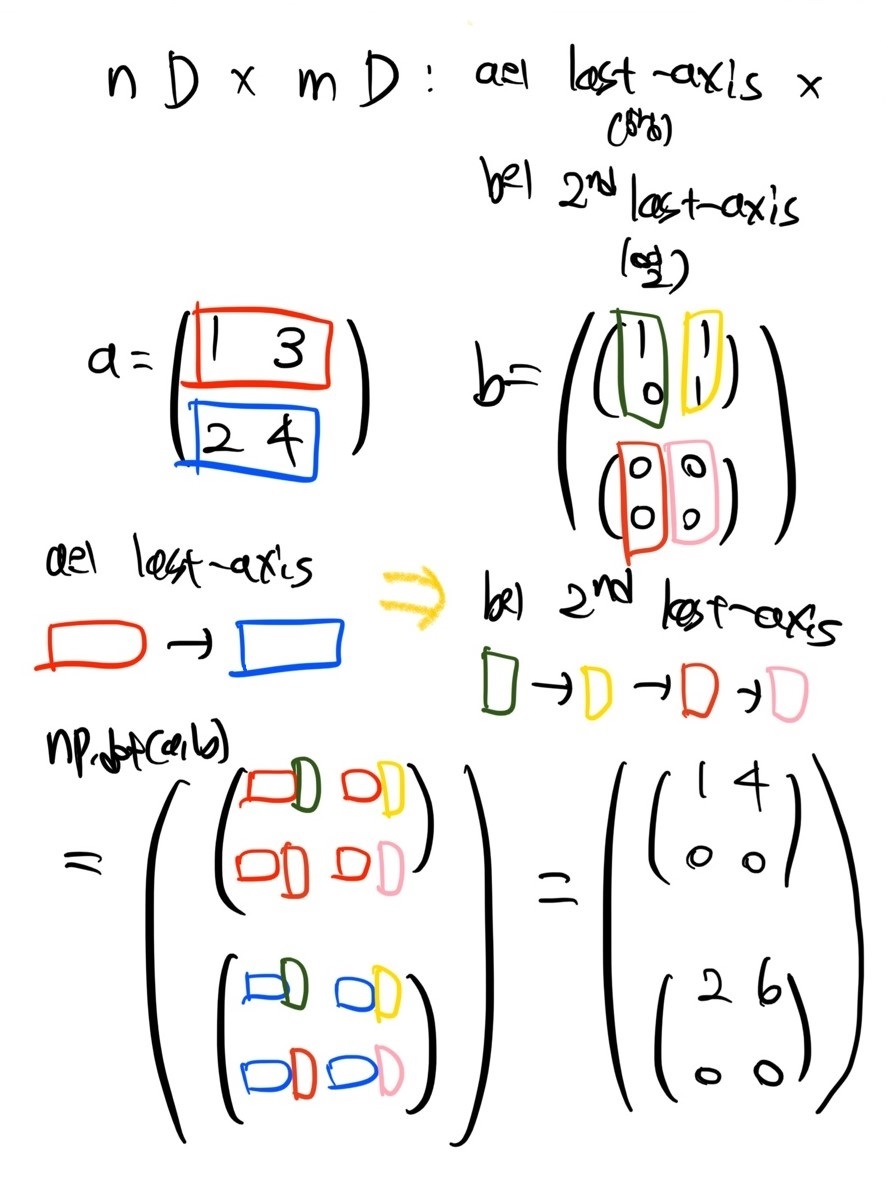 n D x m D : a의 last-axis x
b의 2nd last-axis
a = ( 1 3
2 4 )
b = ( ( 1 1
0 1 )
( 0 0
0 0 ) )
a의 last-axis ⇒ b의 2nd last-axis
→
→ → →
np.dot(a,b)
= =
( ( 1 4
0 0 )
( 2 6
0 0 ) )